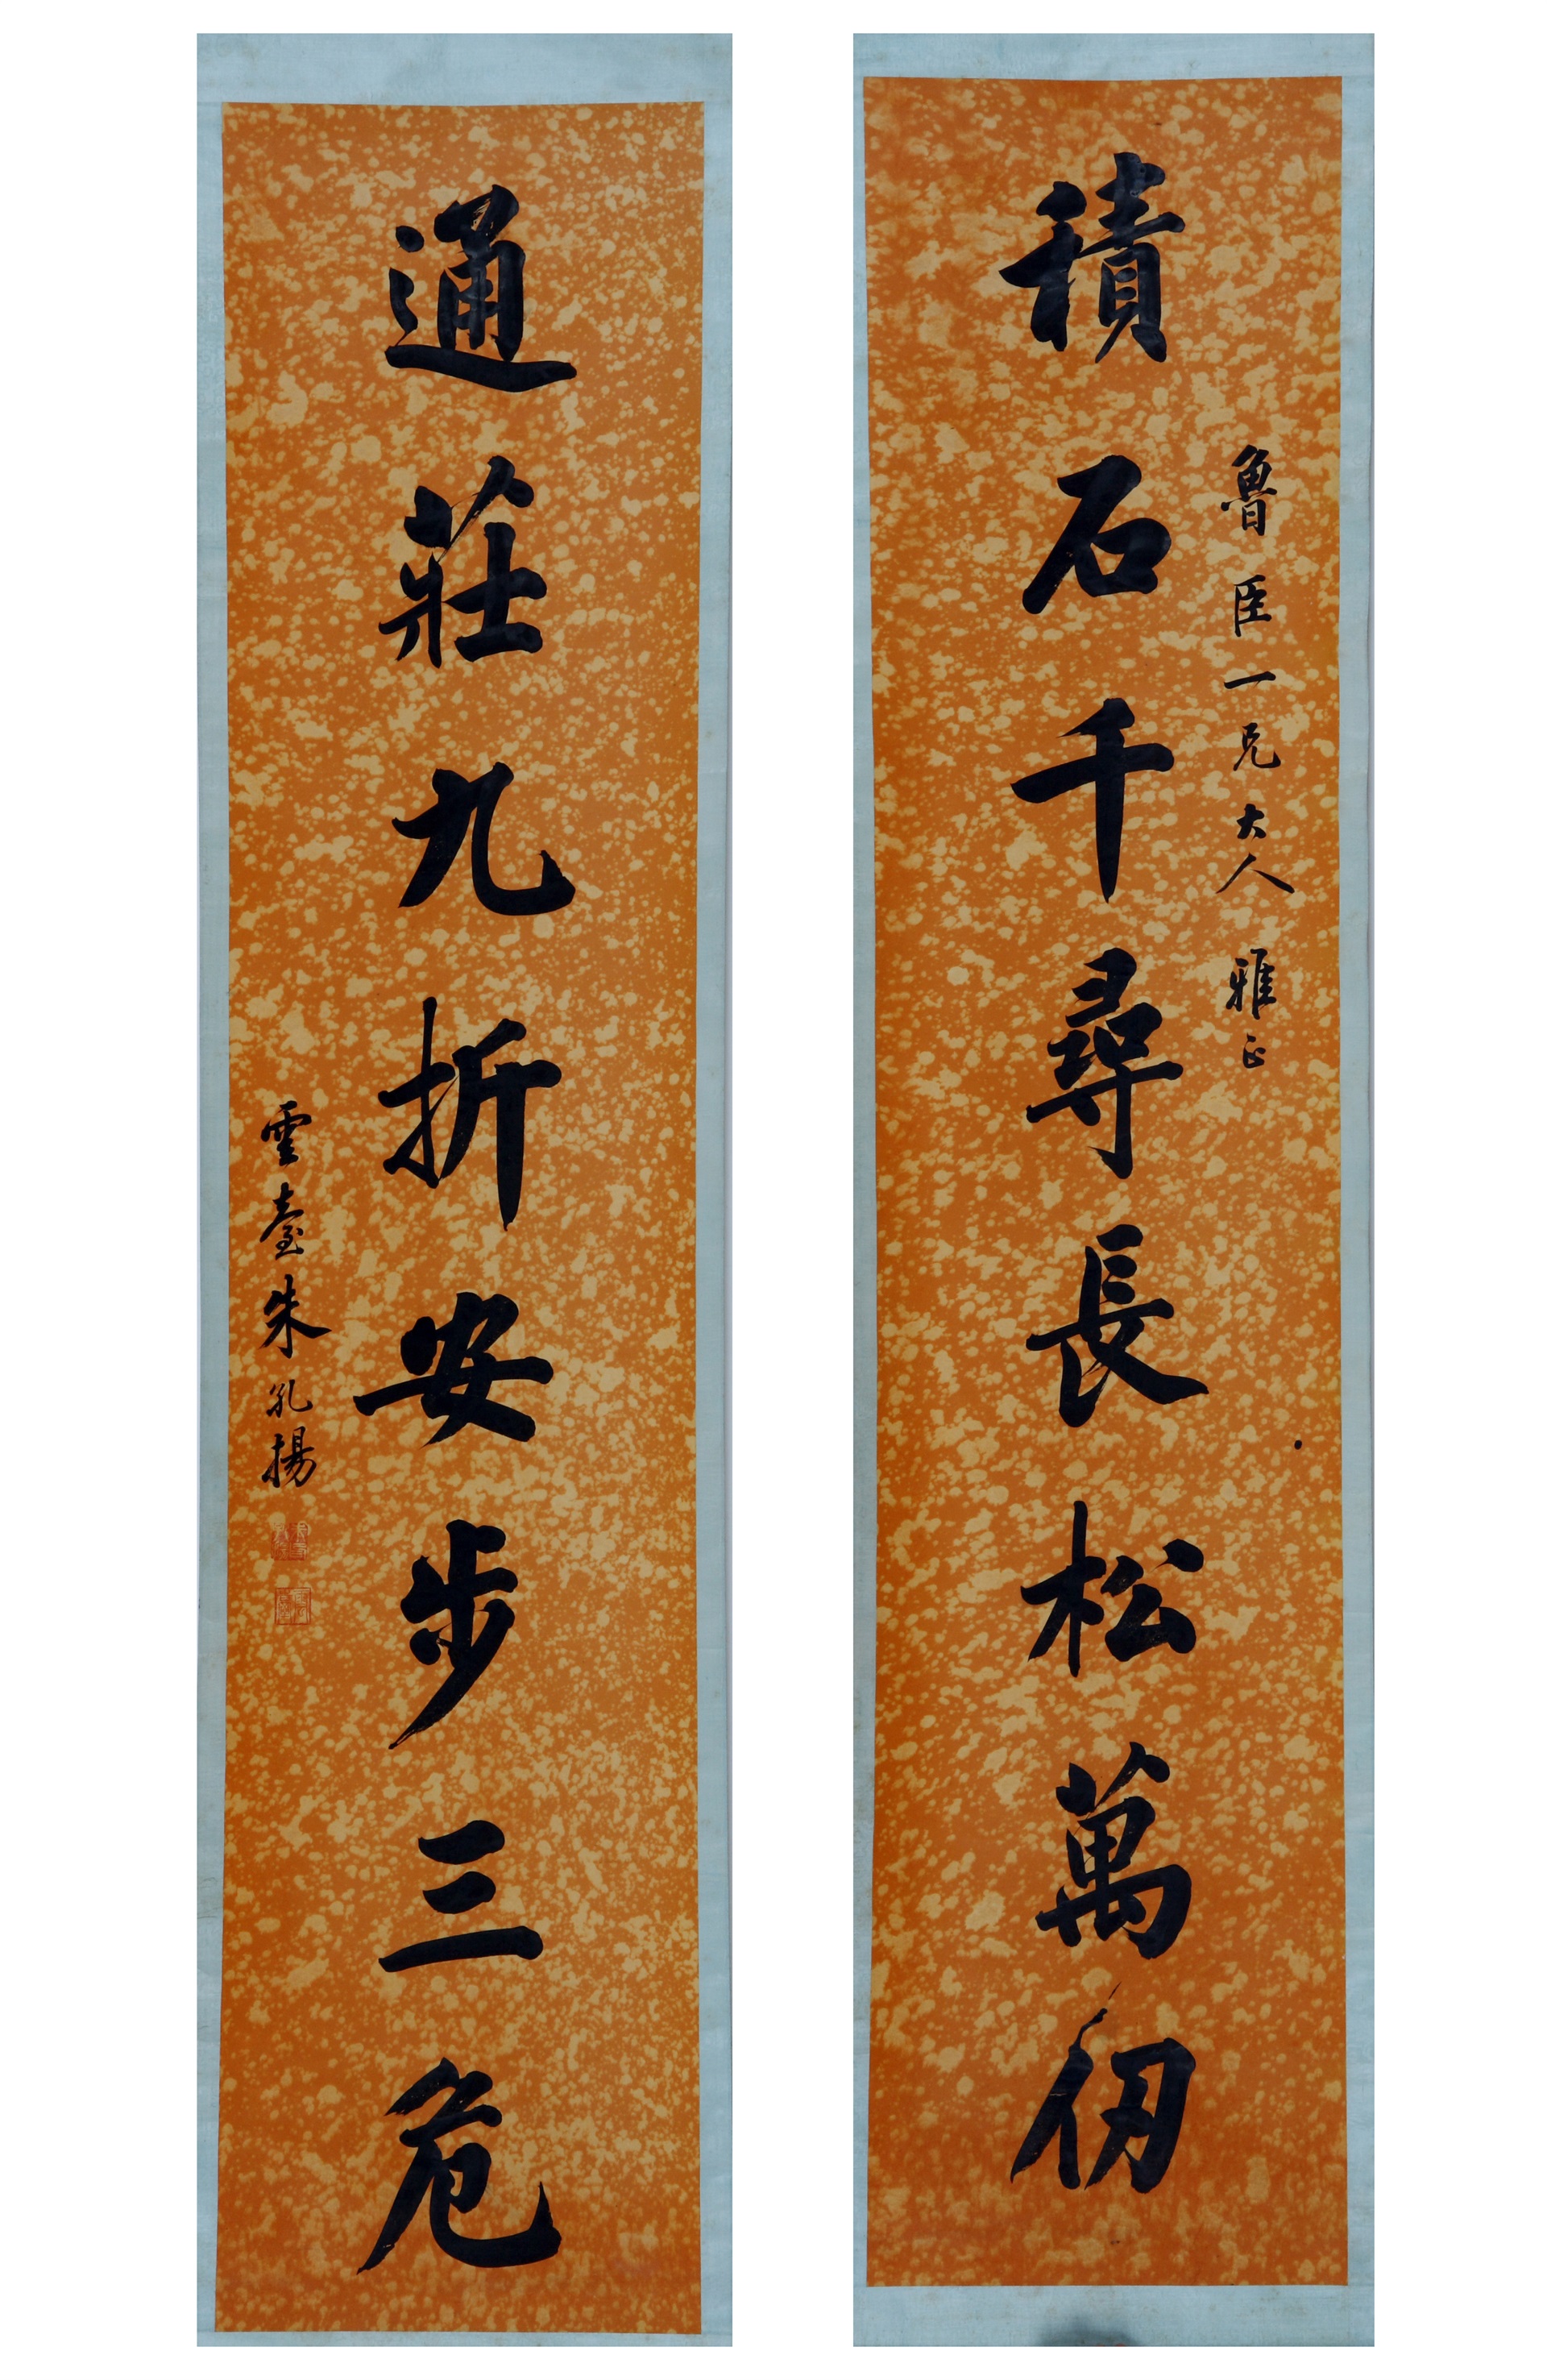 魯臣一兄大人 雅正
積石千尋長松萬仞
通莊九折安步三危
雲臺朱孔揚